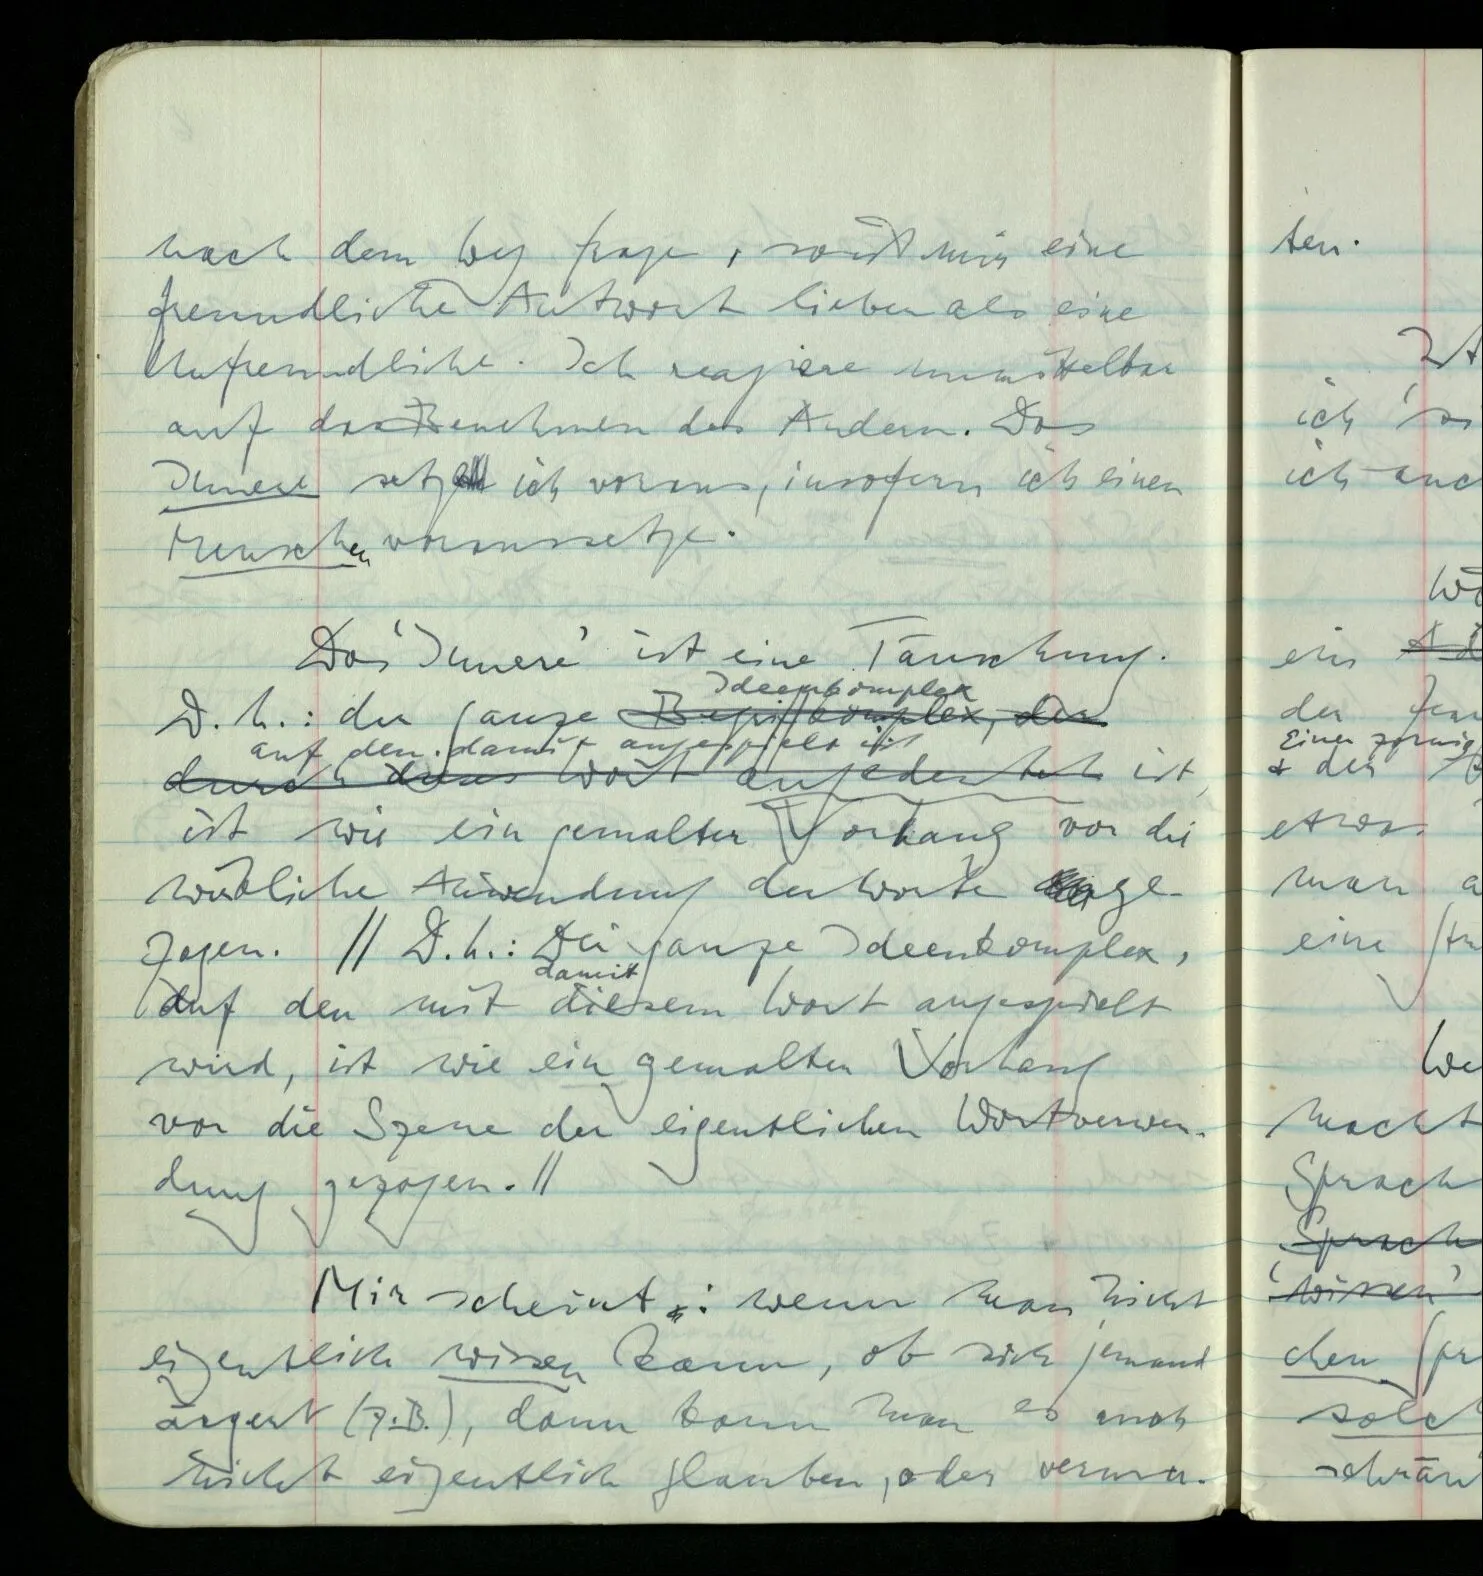 nach dem Weg frage, wird mir eine
freundliche Antwort lieber als eine
Unfreundliche. Ich reagiere unmittelbar
auf das Benehmen des Andern. Das
Innere setze ich voraus, insofern ich einen
Menschen voraussetze.
Das 'Innere' ist eine Täuschung.
Ideenkomplex
D.h.: der ganze Begriffkomplex, der
auf den damit angespielt ist
durch dieses Wort angedeutet ist,
ist wie ein gemalter Vorhang vor die
wirkliche Anwendung der Worte ge-
zogen. // D.h.: Der ganze Ideenkomplex,
damit
auf den mit diesem Wort angespielt
wird, ist wie ein gemalter Vorhang
vor die Szene der eigentlichen Wortverwen-
dung gezogen. //
Mir scheint: wenn man nicht
eigentlich wissen kann, ob sich jemand
ärgert (z.B.), dann kann man es auch
nicht eigentlich glauben, oder vermu-
ten.
ich
ich auc
ein
der
Einen zornig
& der
etwas
man a
eine
We
macht
Sprach
Sprach
'wissen'
chen Spr
solch
schrän